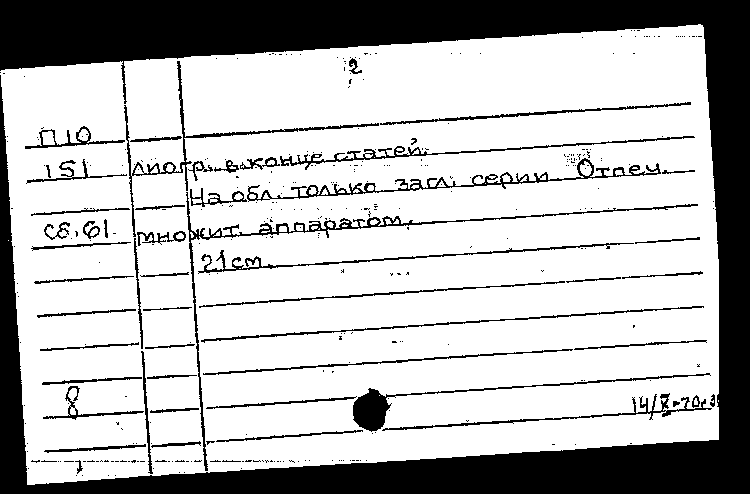 2
П10
151 лиогр. в конце статей.
На обл. только загл. серии Отпеч.
сб.61. множит. аппаратом.
21см.
8
14/X-70г.